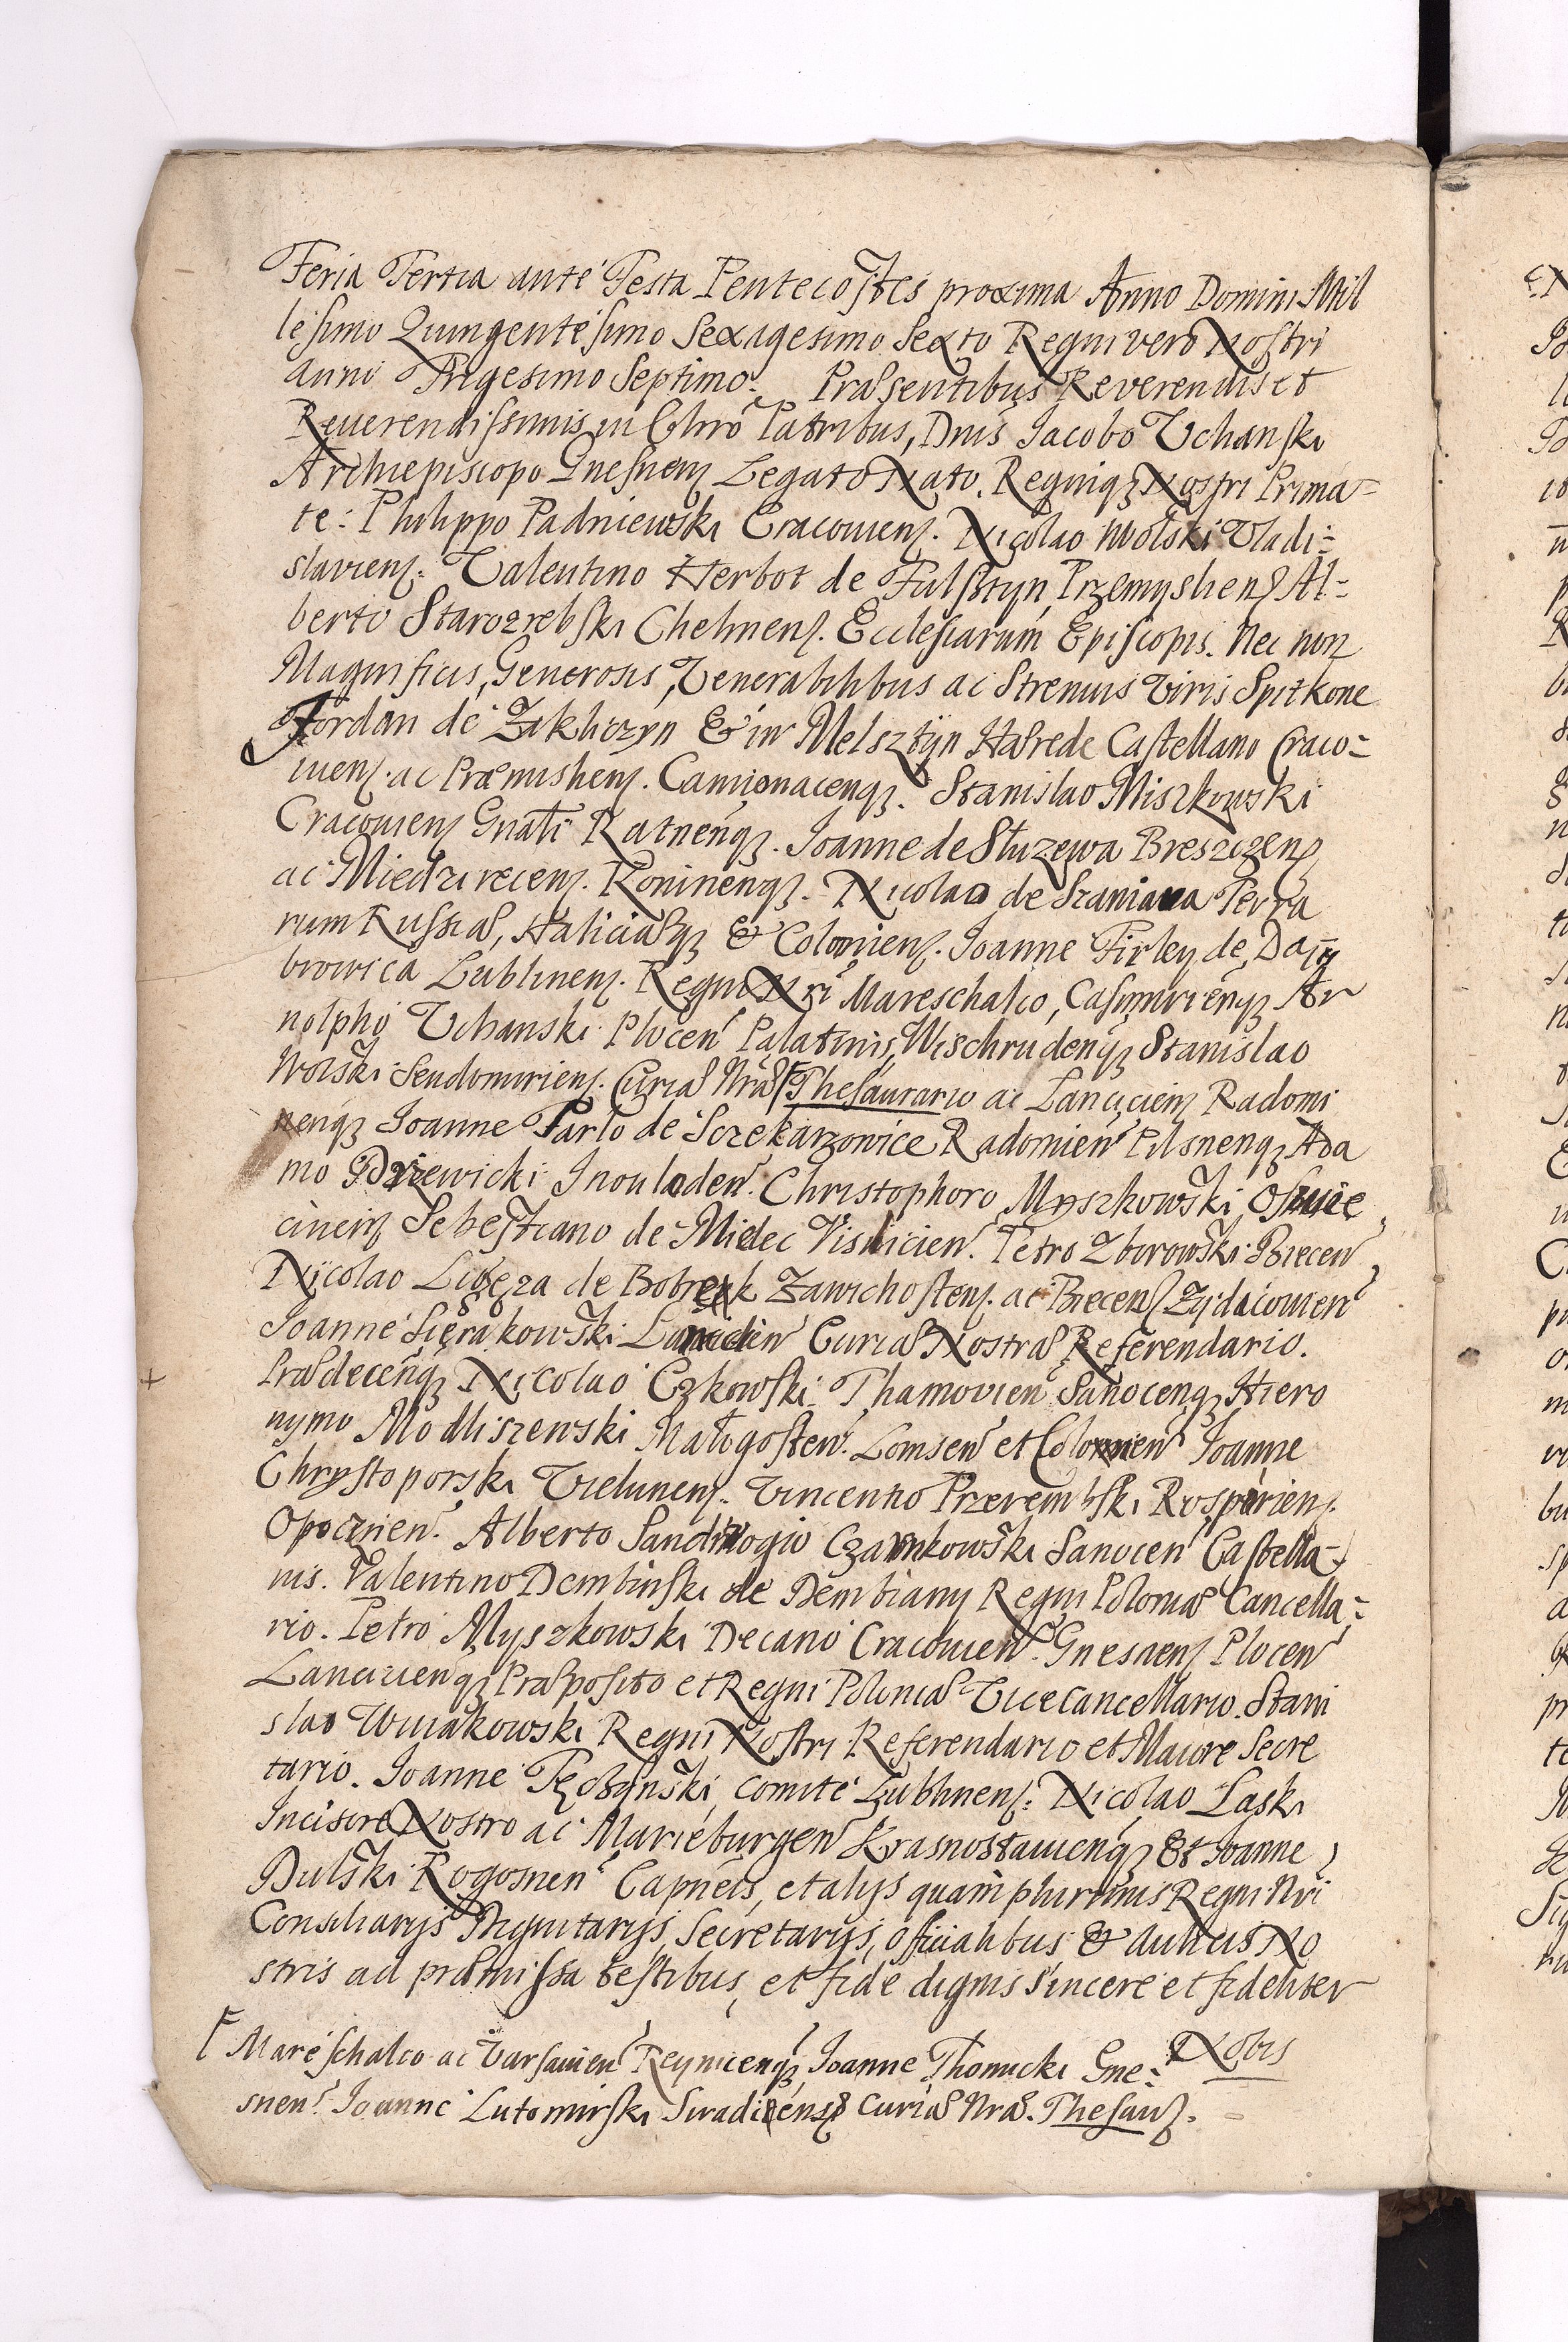 Feria Tertia ante Festa Pentecostes proxima Anno Domini Mil
lesimo Quingentesimo Sexagesimo Sexto Regni vero Nostri
Anni Trigesimo Septimo. Præsentibus Reverendis et
Reuerendissimis in Chrō Patribus, Dnis Jacobo Vchanski
Archiepiscopo Gnesnens Legato Nato, Regniqʒ Nostri Prima=
te: Philippo Padniewski Cracouiens. Nicolao Wolski Vladi=
slaviens: Valentino Herbot de Fulsztyn, Przemysliens Al=
berto Starozrebski Chelmens. Ecclesiarum Episcopis. Nec non
Magnificis, Generosis, Venerabilibus ac Strenuis Viris Spitkone
Jordan de Zakliczyn & in Melsztÿn Hærede Castellano Craco=
uiens. ac Præmisliens. Camionacenqʒ. Stanislao Miszkowski
Cracouiens Gnāli Ratnenqʒ. Joanne de Sluzewa Brescziens
ac Miedzirecens. Koninenqʒ. Nicolao de Szaniawa Terra
rum Russiæ, Haliciæqʒ & Colomiens. Joanne Firley de Dąm
browica Lublinens. Regni Nri Mareschalco, Casimirienqʒ Ar
nolpho Vchanski Plocen Palatinis, Wischrudenqʒ Stanislao
Wolski Sendomiriens. Curiæ Nræ Thesaurario ac Lanciciens Radomi
nenqʒ Joanne Tarlo de Sczekarzowice Radomien Pilsnenqʒ Ada
mo Drzewicki Inouladen. Christophoro Myszkowski Oswie
cineñs Sebestiano de Mielec Visliciēn. Petro Zborowski Biecen,
Nicolao Ligęza de Bobrek Zawichostens. ac Biecens Zydaconien
Joanne Sięrakowski Lancicien Curiæ Nostræ Referendario.
Prædecenqʒ Nicolao Czkowski Tharnovien Sanocenqʒ Hiero
nymo Modliszewski Małogosten. Lomsen et Colonnen Joanne
Chrystoporski Vielunens. Vincentio Przerembski Rospiriens.
Opocznen. Alberto Sandiwogio Czarnkowski Sanocen Castella=
nis. Valentino Dembinski de Dembiany Regni Poloniæ Cancella=
rio. Petro Myszkowski Decano Cracouien. Gnesnens Plocen
Lancicienqʒ Præposito et Regni Poloniæ Vicecancellario. Stani
slao Wniakowski Regni Nostri Referendario et Maiore Secre
tario. Joanne Tęczÿnski, Comite Lublinens. Nicolao Laski
Incisore Nostro ac Marieburgen Krasnostawienqʒ Et Joanne
Dulski Rogosnen Capneis, et alys quam plurimis Regni Nri
Consiliarijs Dignitarijs, Secretarijs, Officialibus & Aulicis No
stris ad præmissa testibus, et fide dignis sincere et fideliter
Nobis
Mareschalco ac Varsauien Reyniceñqʒ, Joanne Thomicki Gne=
snen. Joanne Lutomirski Siradiens Curiæ Nræ. Thesaur.